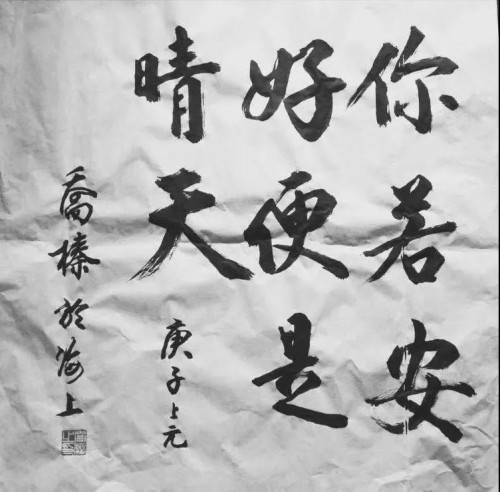 你若安
好便是
晴天
庚子上元
乔榛於海上